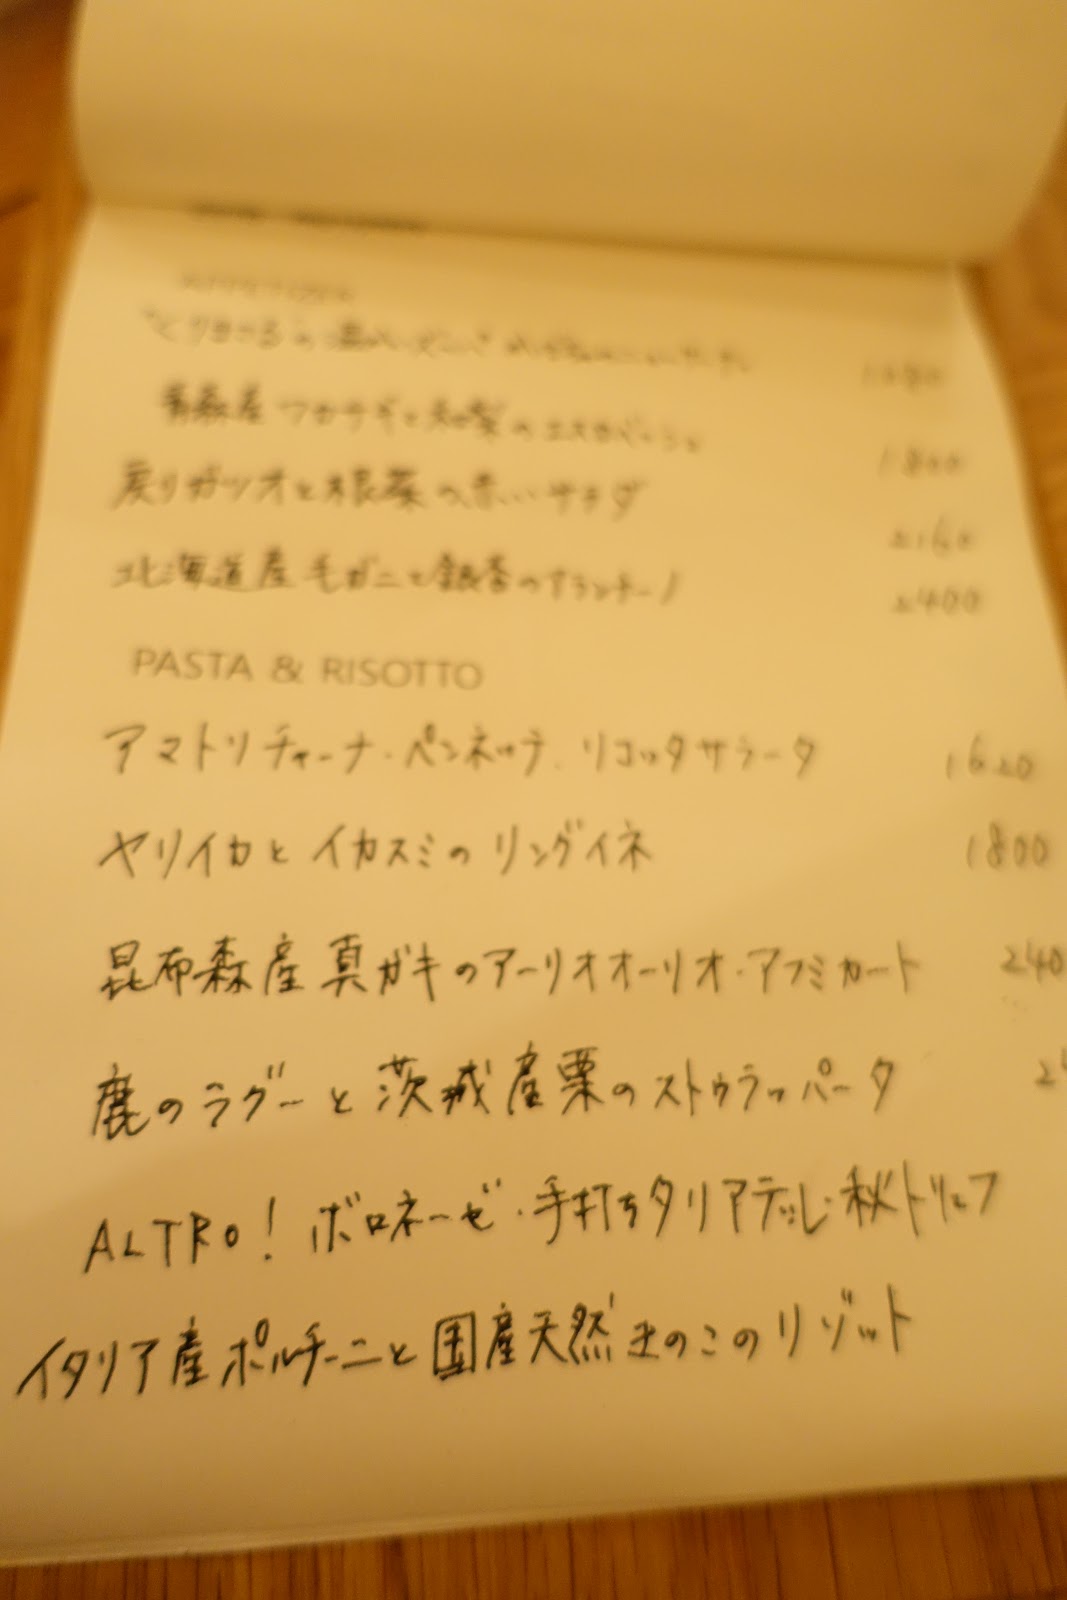 APPETIZER
1080
青森産ワカサギと和梨のエスカベーシュ 1800
戻りガツオと根菜の赤いサラダ 2160
北海道産毛ガニと銀杏の 2400
PASTA & RISOTTO
アマトリチャーナ・ペンネッテ・リコッタサラータ 1620
ヤリイカとイカスミのリングイネ 1800
昆布森産真ガキのアーリオオーリオ・アフミカート 240
鹿のラグーと茨城産栗のストゥラッパータ 2
ALTRO! ボロネーゼ・手打ちタリアテッレ・秋トリュフ
イタリア産ポルチーニと国産天然きのこのリゾット